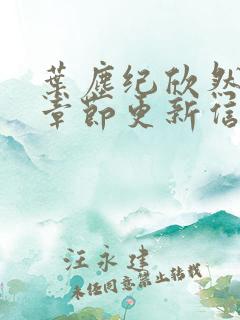 葉塵纪欣然
章節更新信
汪永建
未经同意禁止转载